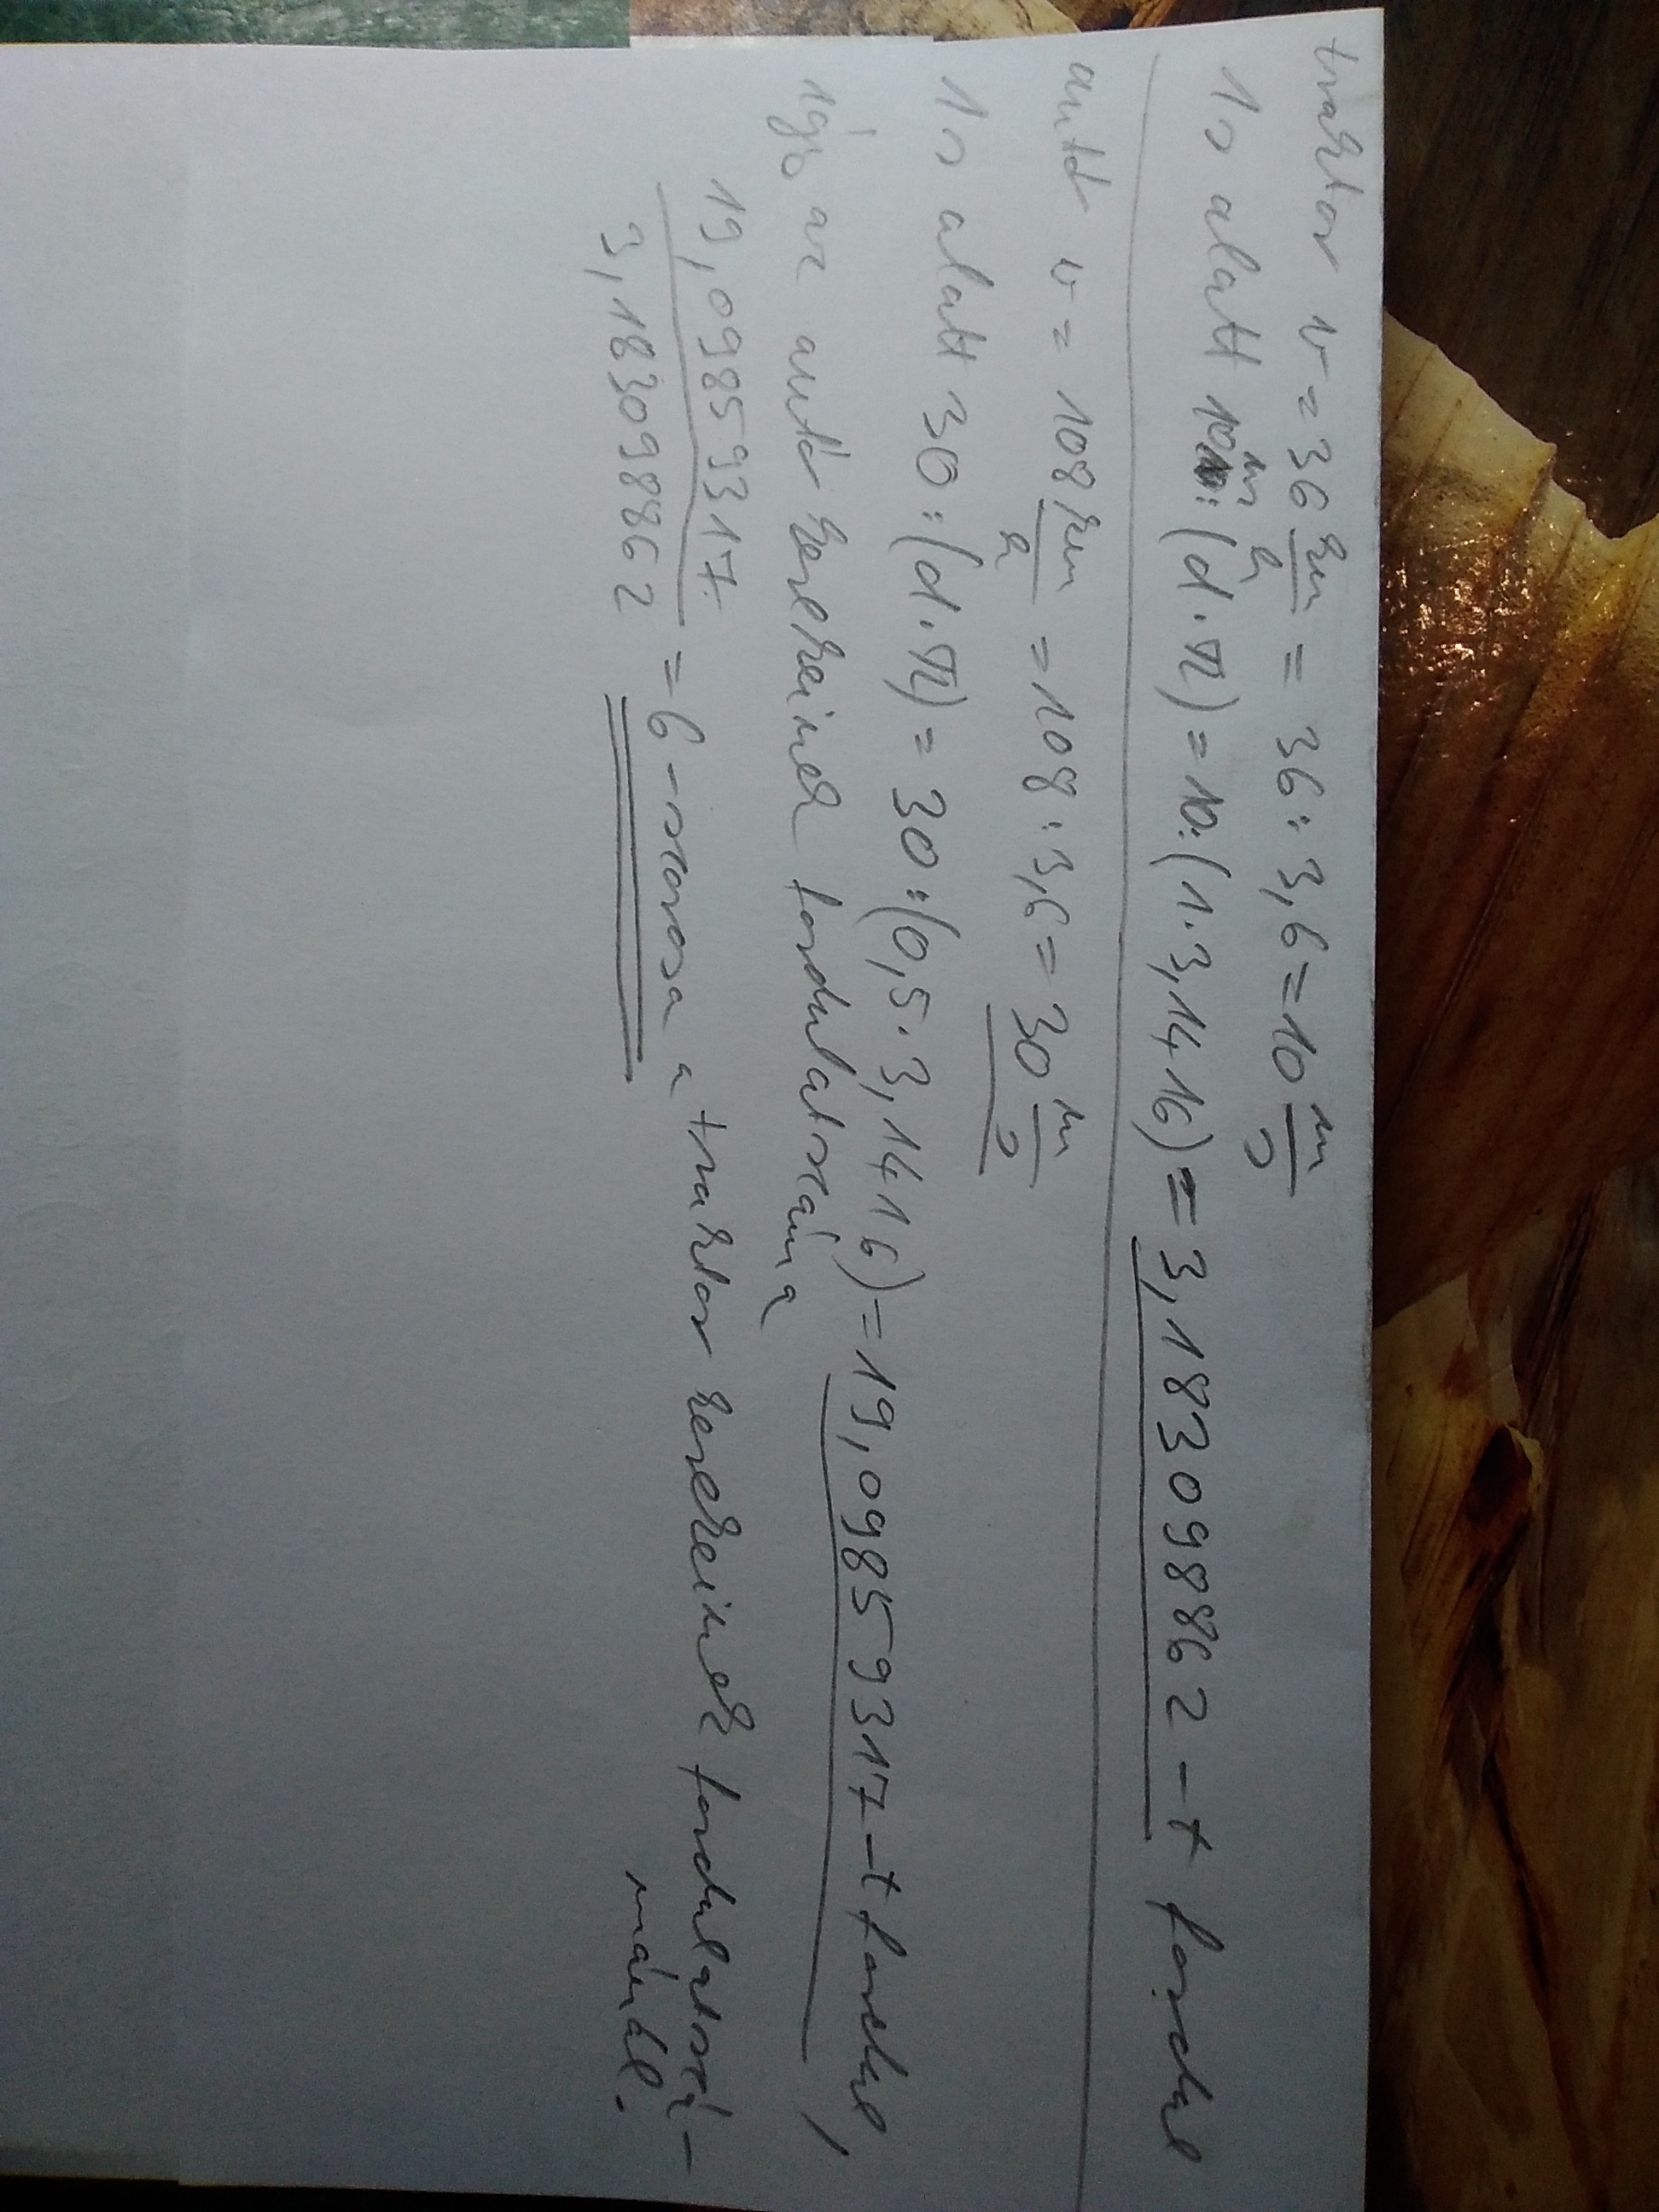 traktor v = 36 km/h = 36 : 3,6 = 10 m/s
1 s alatt 10 m : (d · π) = 10 : (1 · 3,1416) = 3,183098862 - t fordul
autó v = 108 km/h = 108 : 3,6 = 30 m/s
1 s alatt 30 : (d · π) = 30 : (0,5 · 3,1416) = 19,09859317 - t fordul,
így az autó kerekeinek fordulatszáma
19,09859317 / 3,183098862 = 6 - szorosa a traktor kerekeinek fordulatszá-
mának.